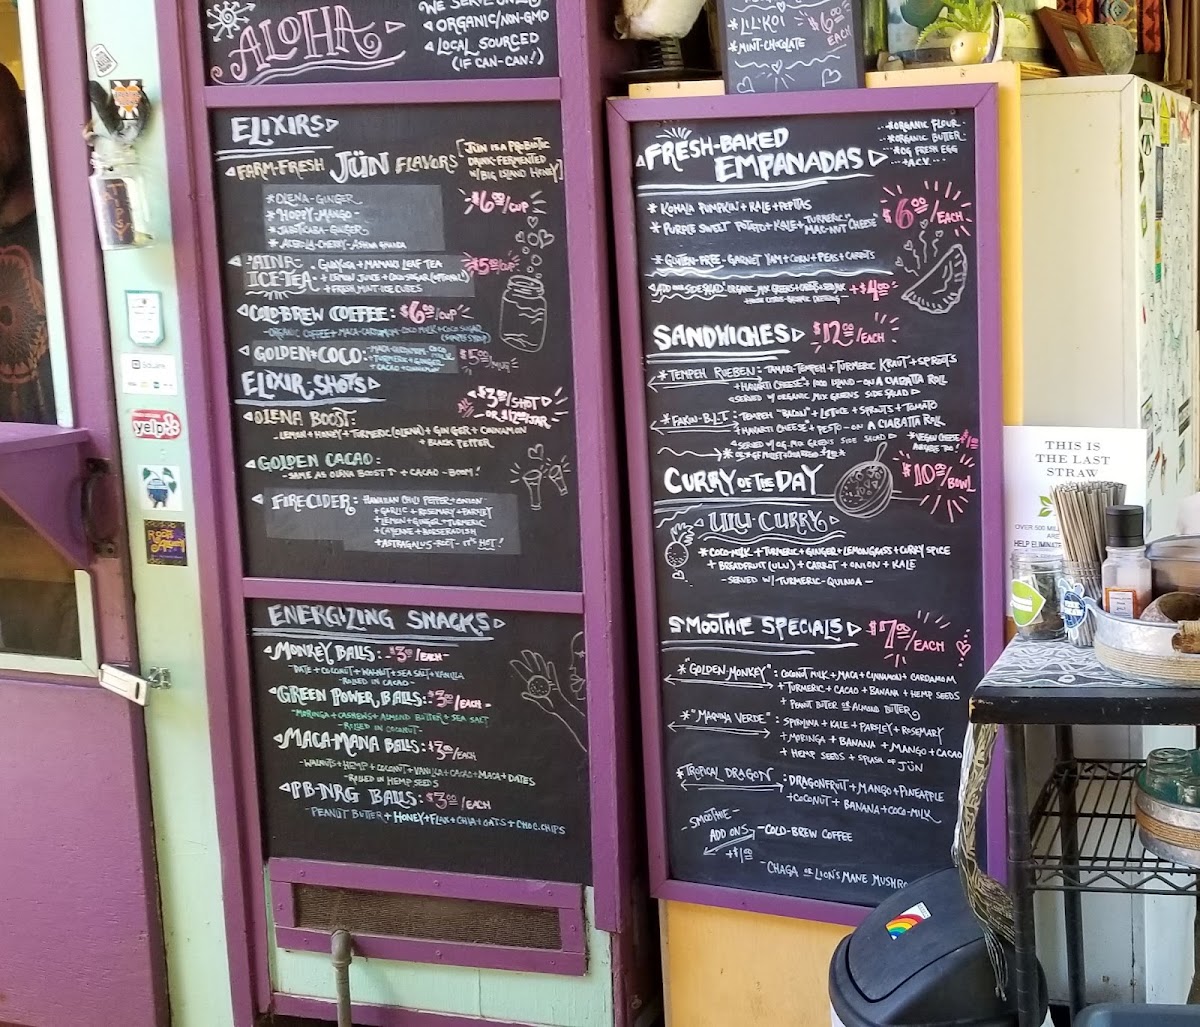 ALOHA
WE SERVE ONLY
ORGANIC/NON-GMO
LOCAL SOURCED
(IF CAN-CAN!)
ELIXIRS
FARM-FRESH JÜN FLAVORS
[JÜN IS A PROBIOTIC
DRINK-FERMENTED
W/BIG ISLAND HONEY]
$6.00/CUP
*OLENA-GINGER
*HOPPY-MANGO-
*JABOTICABA-GINGER
*ACEROLA-CHERRY-ASHWAGHANDA
'AINA- ICE-TEA
GUAYUSA + MAMAKI LEAF TEA
+ LEMON JUICE + COCO SUGAR (OPTIONAL)
+ FRESH MINT-ICE CUBES
$5.00/CUP
COLD-BREW COFFEE: $6.00/CUP
-ORGANIC COFFEE + MACA-CARDAMOM-COCO MILK + COCO SUGAR
(SIMPLE SYRUP)
GOLDEN+COCO: MACA-CARDAMOM, COCO MILK
+ TURMERIC + GINGER
+ CACAO + CINNAMON
$5.00/MUG
ELIXIR-SHOTS
$3.00/SHOT
-OR- $12/JAR
OLENA BOOST:
-LEMON + HONEY + TURMERIC (OLENA) + GINGER + CINNAMON
+ BLACK PEPPER
GOLDEN CACAO:
-SAME AS OLENA BOOST ↑ + CACAO - BOOM!
FIRE CIDER: HAWAIIAN CHILI PEPPER + ONION
+ GARLIC + ROSEMARY + PARSLEY
+ LEMON + GINGER + TURMERIC
+ CAYENNE + HORSERADISH
+ ASTRAGALUS-ROOT - IT'S HOT!
ENERGIZING SNACKS
MONKEY BALLS: $3.00/EACH-
-DATE + COCONUT + WALNUT + SEA SALT + VANILLA
-ROLLED IN CACAO-
GREEN POWER BALLS: $3.00/EACH-
-MORINGA + CASHEWS + ALMOND BUTTER + SEA SALT
-ROLLED IN COCONUT-
MACA-MANA BALLS: $3.00/EACH
-WALNUTS + HEMP + COCONUT + VANILLA + CACAO + MACA + DATES
-ROLLED IN HEMP SEEDS
PB-NRG BALLS: $3.00/EACH
-PEANUT BUTTER + HONEY + FLAX + CHIA + OATS + CHOC. CHIPS
TIPS
Square
yelp
*LIL'KOI
*MINT-CHOCOLATE
$6.00
EACH
FRESH-BAKED
EMPANADAS
*ORGANIC FLOUR
*ORGANIC BUTTER
*OG FRESH EGG
+A.C.V.
$6.00/EACH
* KOHALA PUMPKIN + KALE + PEPITAS
* PURPLE SWEET POTATO + KALE + TURMERIC "MAC-NUT CHEESE"
* GLUTEN-FREE- GARNET YAM + CORN + PEAS + CARROTS
ADD SIDE SALAD ORGANIC MIX GREENS
+$4.00
SANDWICHES $12.00/EACH
*TEMPEH RUEBEN: TAMARI-TEMPEH + TURMERIC KRAUT + SPROTS
+ HAVARTI CHEESE + 1000 ISLAND - ON A CIABATTA ROLL
-SERVED W/ ORGANIC MIX GREENS SIDE SALAD
*FAKIN-B.L.T: TEMPEH "BACON" + LETTUCE + SPROUTS + TOMATO
+ HAVARTI CHEESE + PESTO - ON A CIABATTA ROLL
-SERVED W/ OG MIX GREENS SIDE SALAD
*VEGAN CHEESE
AVAILABLE TOO! $1.00
CURRY OF THE DAY
$10.00/BOWL
ULU CURRY
*COCO-MILK + TURMERIC + GINGER + LEMONGRASS + CURRY SPICE
+ BREADFRUIT (ULU) + CARROT + ONION + KALE
-SERVED W/TURMERIC-QUINOA-
SMOOTHIE SPECIALS $7.00/EACH
*"GOLDEN-MONKEY": COCONUT MILK + MACA + CINNAMON + CARDAMOM
+ TURMERIC + CACAO + BANANA + HEMP SEEDS
+ PEANUT BUTTER OR ALMOND BUTTER
*"MAQUINA VERDE": SPIRULINA + KALE + PARSLEY + ROSEMARY
+ MORINGA + BANANA + MANGO + CACAO
+ HEMP SEEDS + SPLASH OF JÜN
*TROPICAL DRAGON: DRAGONFRUIT + MANGO + PINEAPPLE
+ COCONUT + BANANA + COCO-MILK
-SMOOTHIE-
ADD ONS
+$1.00
-COLD-BREW COFFEE
-CHAGA OR LION'S MANE MUSHRO
THIS IS
THE LAST
STRAW
OVER 500 MIL
ARE
HELP ELIMINATE